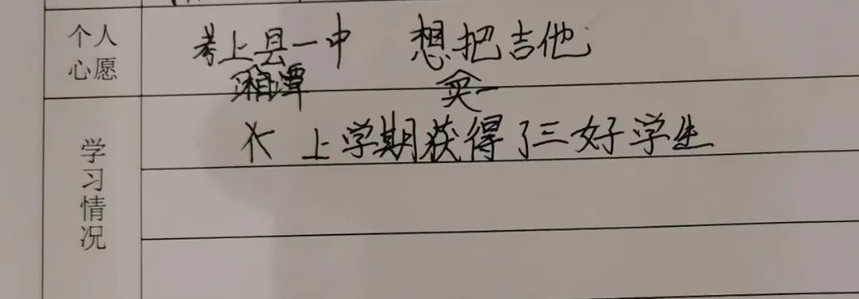 个人心愿
考上县一中 想把吉他
湘潭 买一
学习情况
上学期获得了三好学生